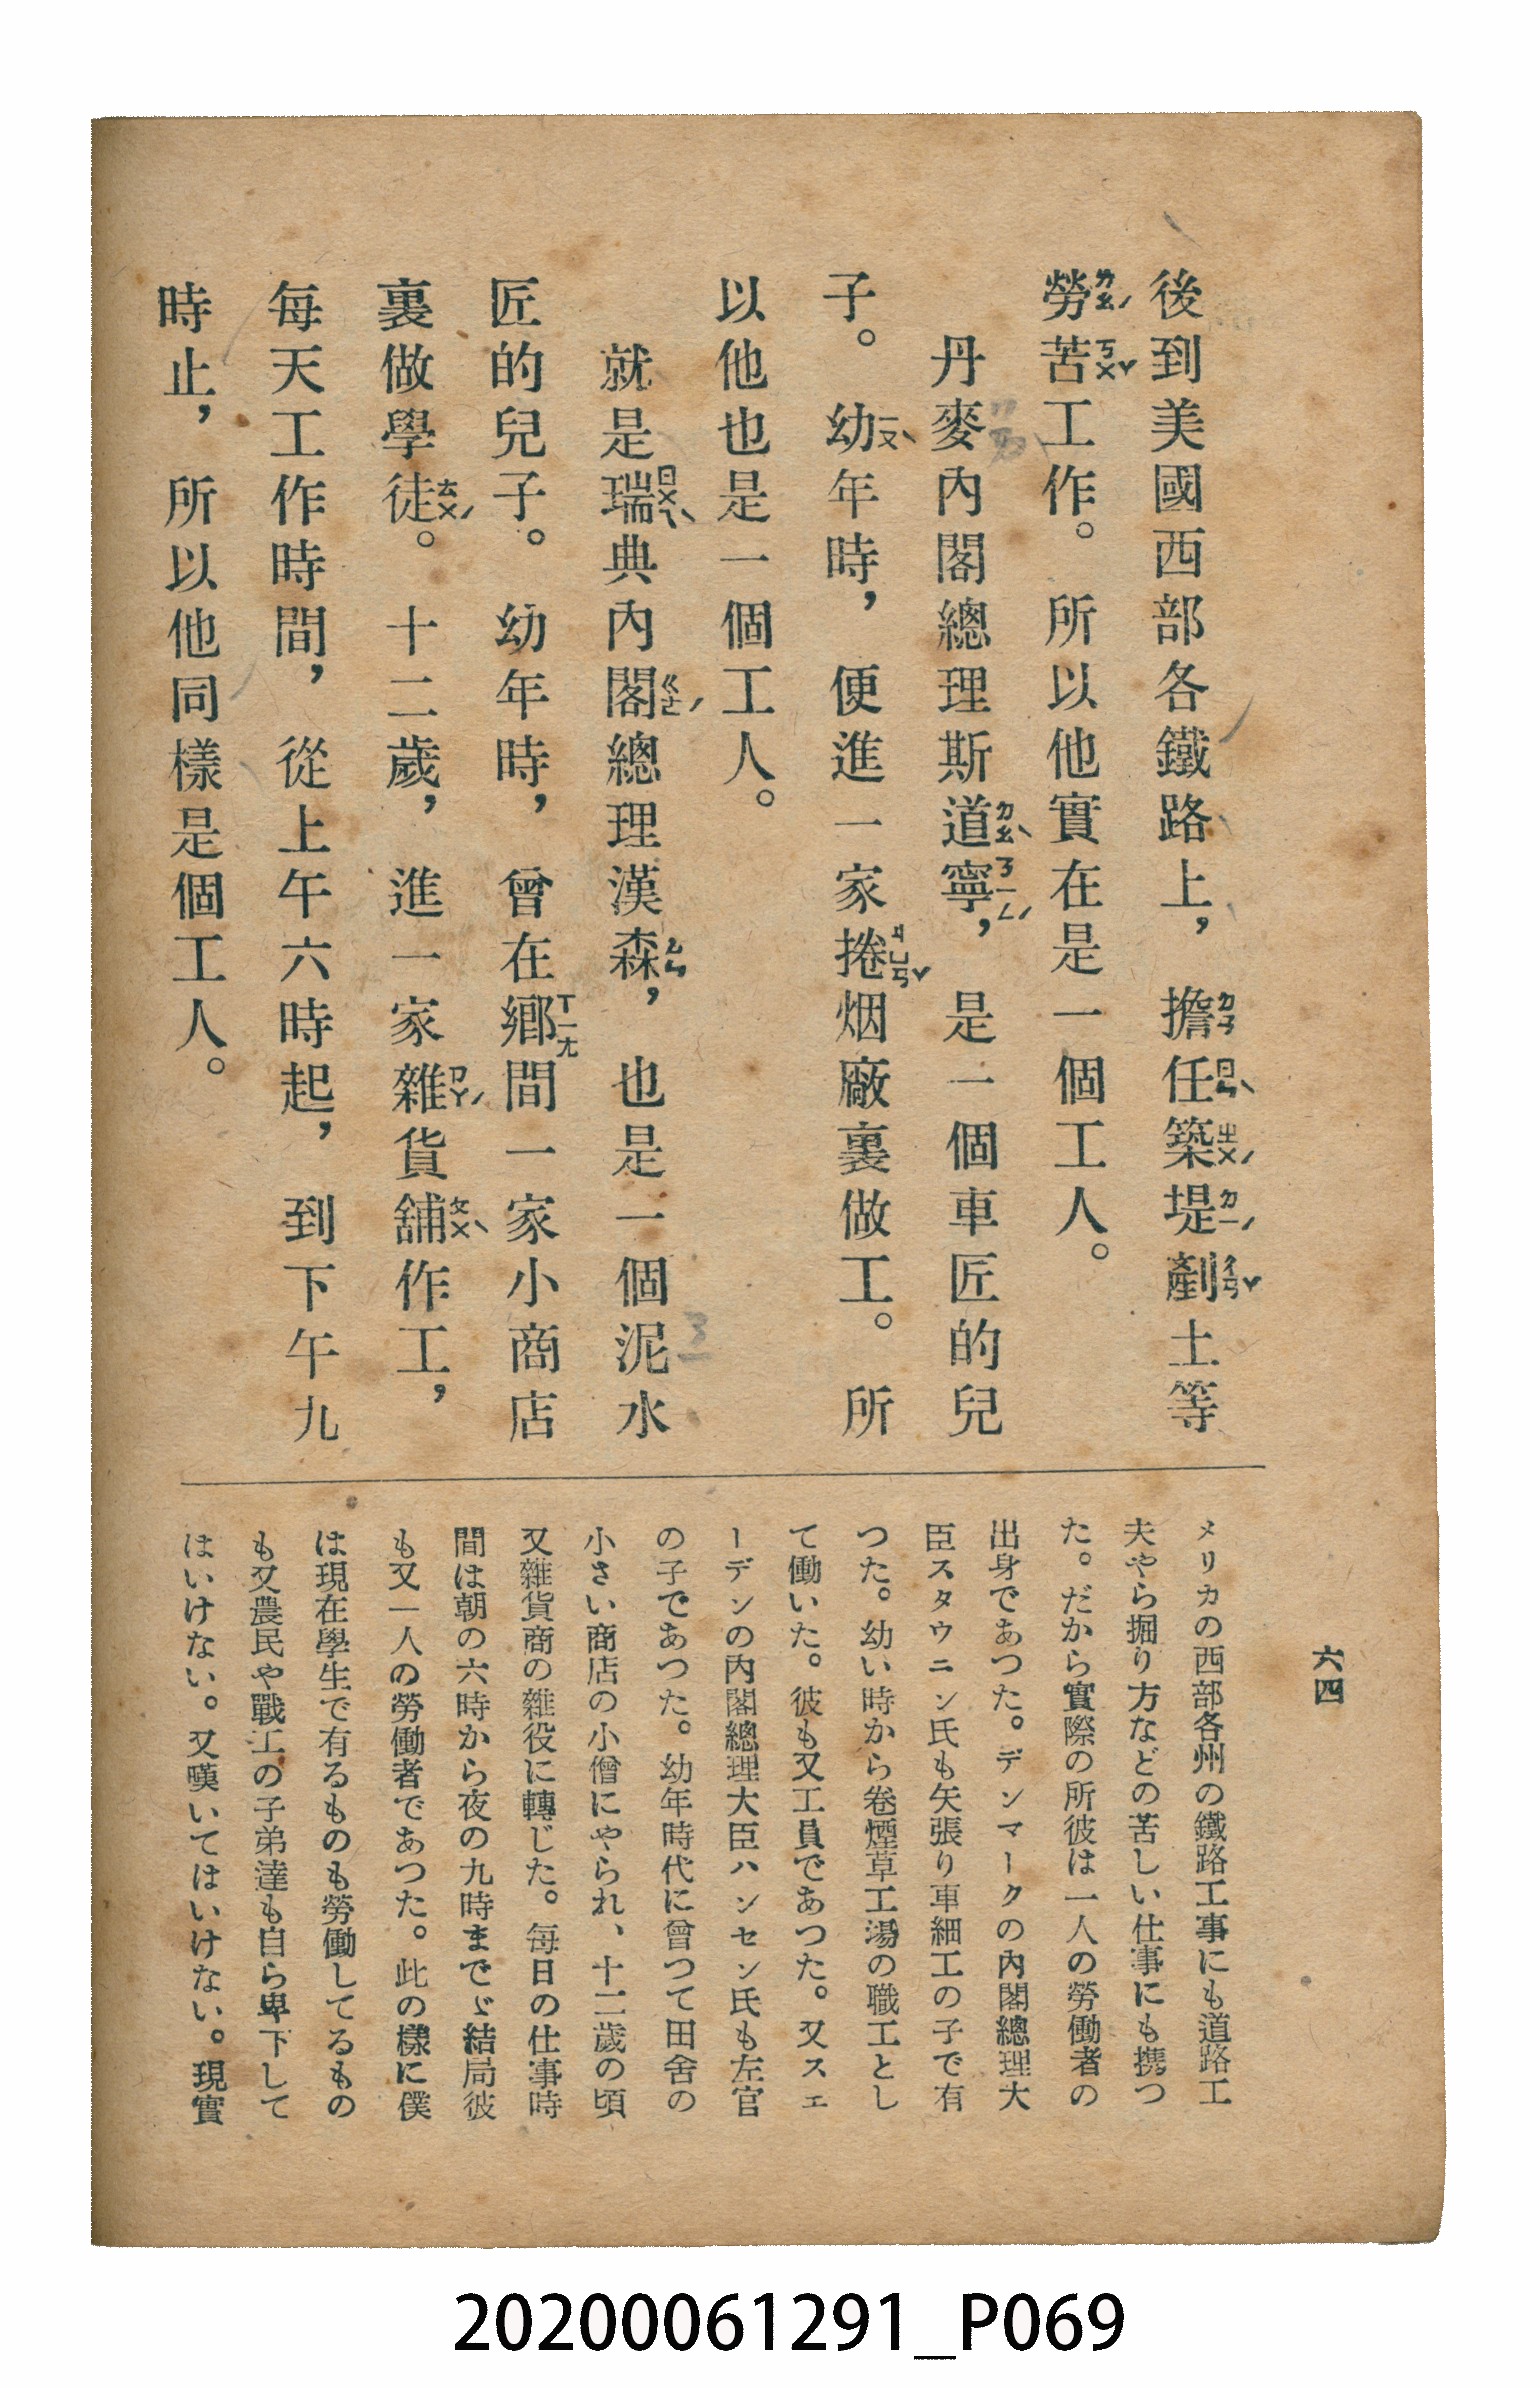 後到美國西部各鐵路上，擔任築堤剷土等
勞苦工作。所以他實在是一個工人。
丹麥內閣總理斯道寧，是一個車匠的兒
子。幼年時，便進一家捲烟廠裏做工。所
以他也是一個工人。
就是瑞典內閣總理漢森，也是一個泥水
匠的兒子。幼年時，曾在鄉間一家小商店
裏做學徒。十二歲，進一家雜貨舖作工，
每天工作時間，從上午六時起，到下午九
時止，所以他同樣是個工人。
六四
メリカの西部各州の鐵路工事にも道路工
夫やら掘り方などの苦しい仕事にも携つ
た。だから實際の所彼は一人の勞働者の
出身であつた。デンマークの內閣總理大
臣スタウニン氏も矢張り車細工の子で有
つた。幼い時から卷煙草工湯の職工とし
て働いた。彼も又工員であつた。又スエ
ーデンの內閣總理大臣ハンセン氏も左官
の子であつた。幼年時代に曾つて田舍の
小さい商店の小僧にやられ、十二歲の頃
又雜貨商の雜役に轉じた。每日の仕事時
間は朝の六時から夜の九時までゞ結局彼
も又一人の勞働者であつた。此の樣に僕
は現在學生で有るものも勞働してるもの
も又農民や戰工の子弟達も自ら卑下して
はいけない。又嘆いてはいけない。現實
ㄌㄠˊ
ㄎㄨˇ
ㄉㄢ
ㄖㄣˋ
ㄓㄨˊ
ㄉㄧˊ
ㄔㄢˇ
ㄉㄠˋ
ㄋㄧㄥˊ
ㄧㄡˋ
ㄐㄩㄢˇ
ㄖㄨㄟˋ
ㄍㄜˊ
ㄙㄣ
ㄒㄧㄤ
ㄊㄨˊ
ㄗㄚˊ
ㄆㄨˋ
20200061291_P069